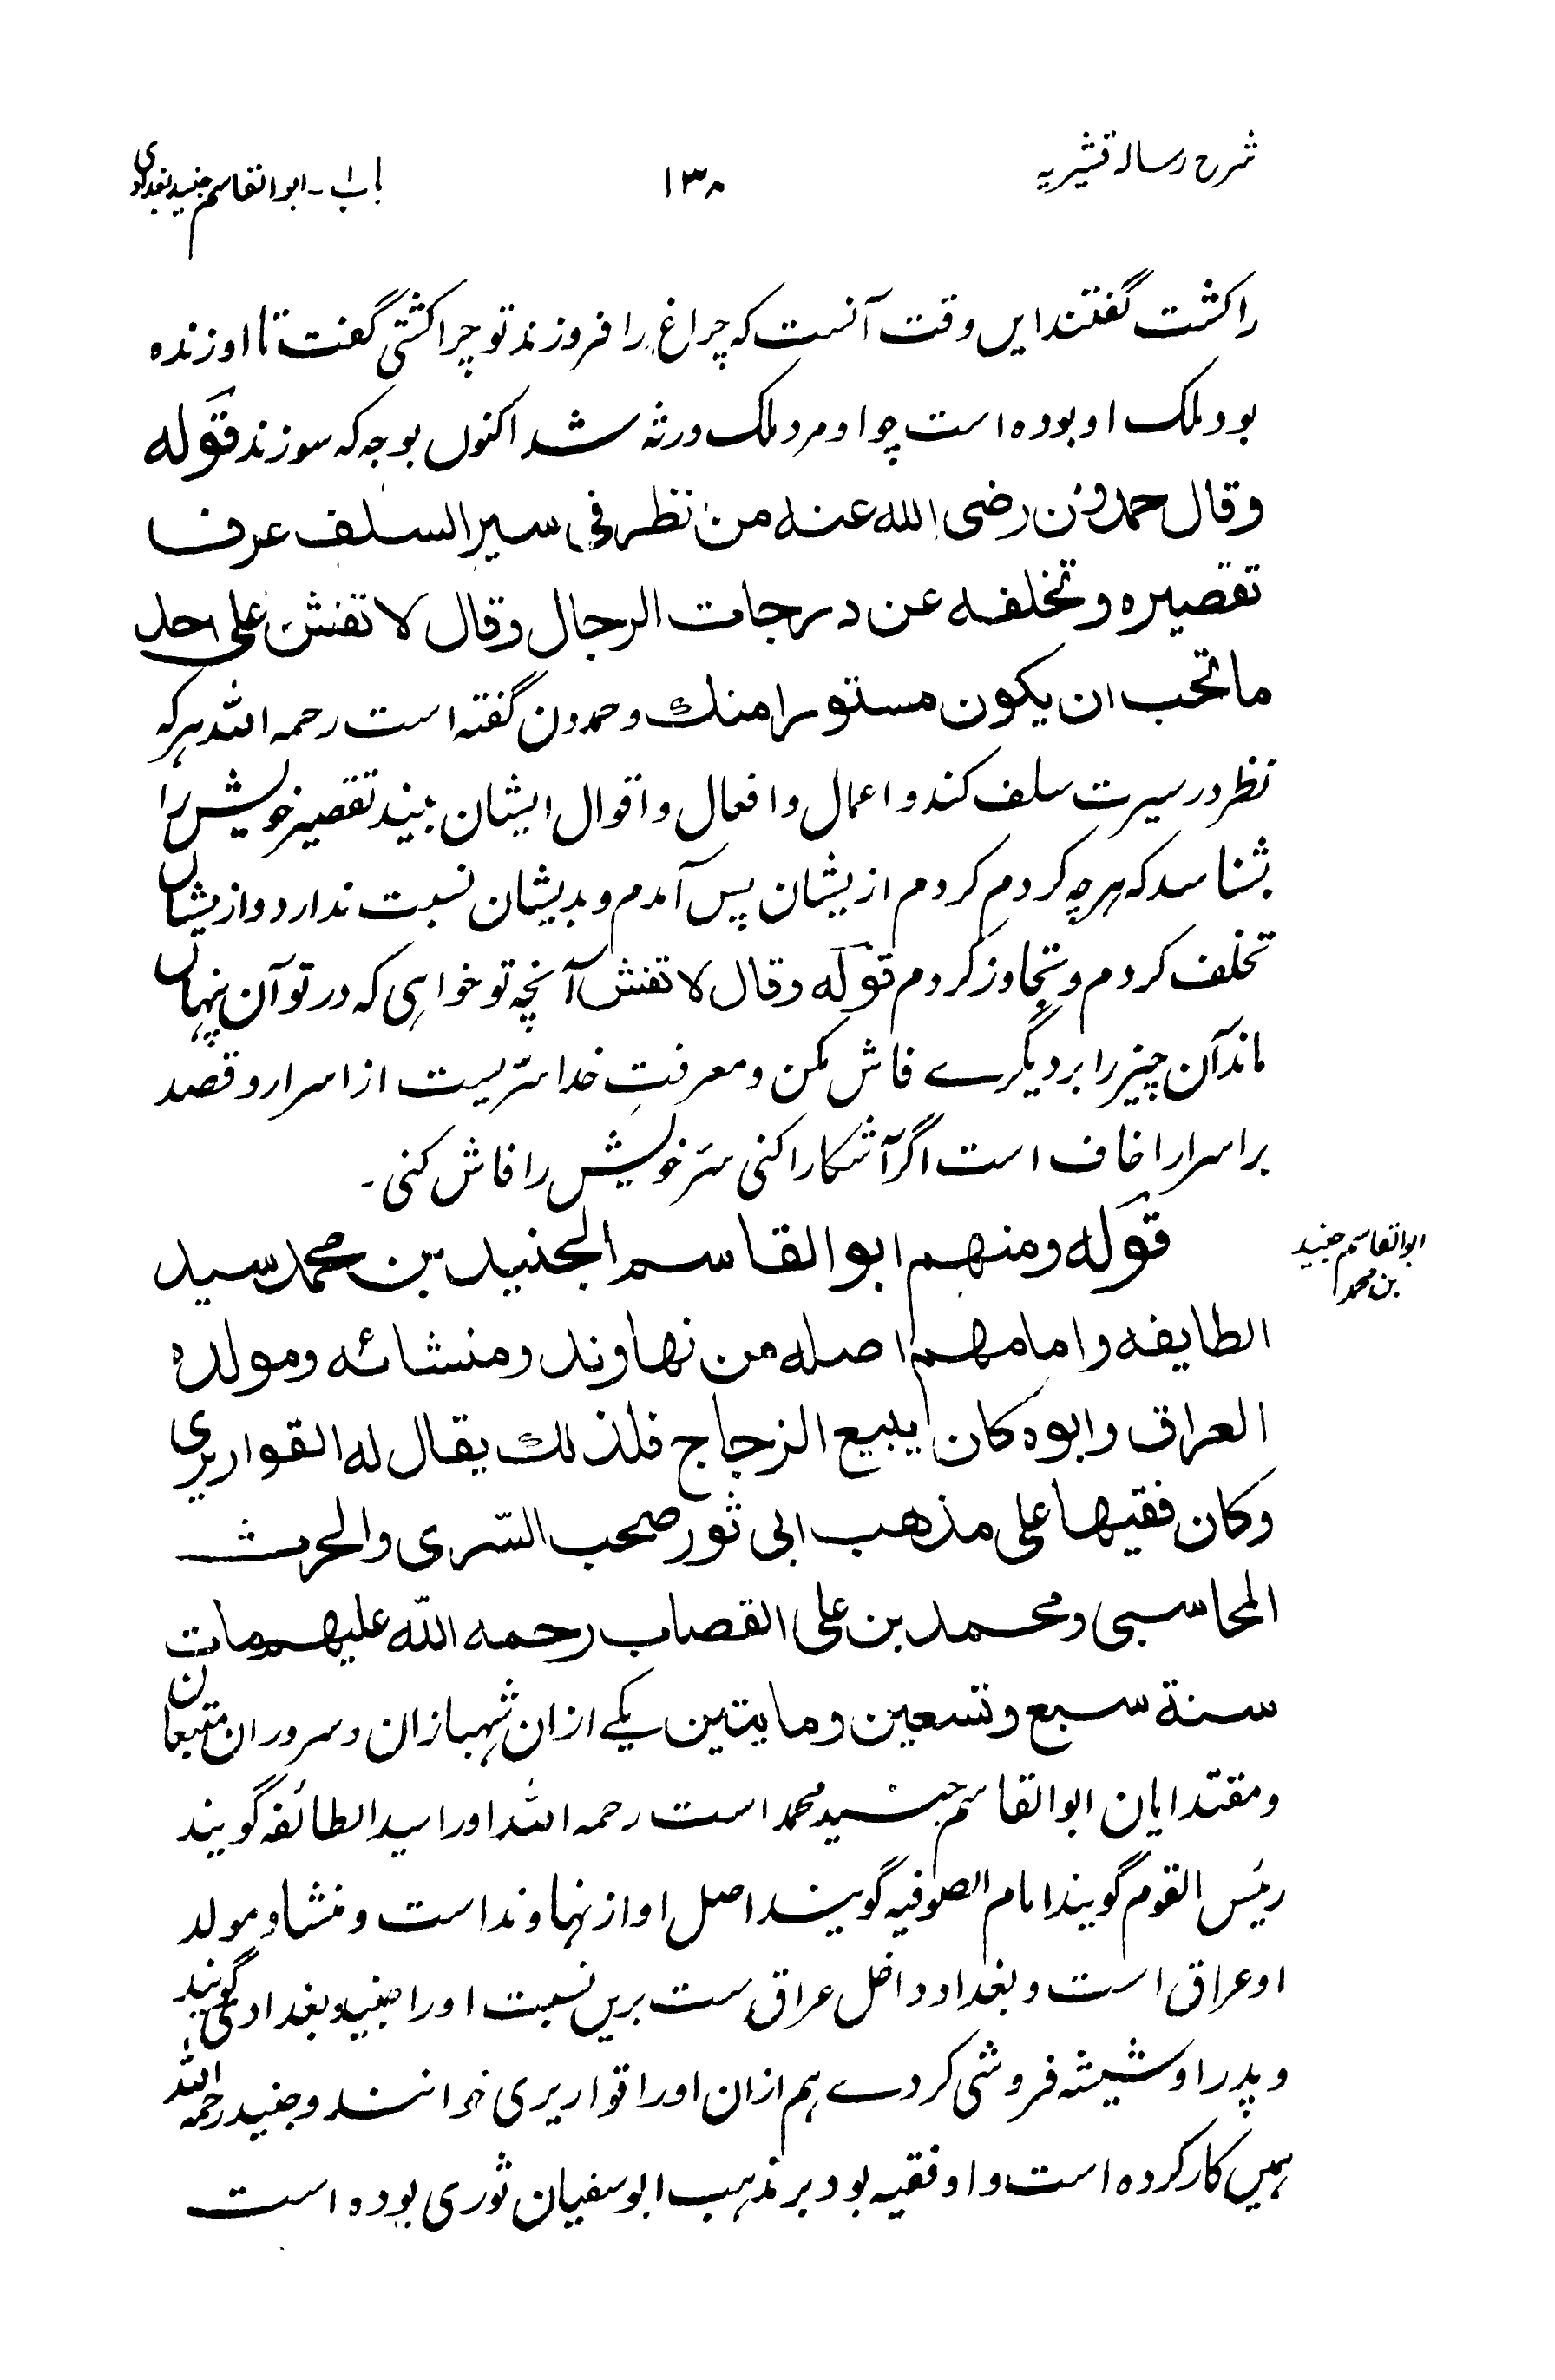 شرح رسالہ قشیریہ
۱۳۸
باب ۱ - ابو القاسم جنید بغدادی
را کشت گفتند ایں وقت آنست کہ چراغ را فروزند تو چرا کشتی گفت تا او زندہ
بود ملک او بودہ است چو او مرد ملک ورثہ شد اکنوں بوجہ کہ سوزند قولہ
وقال حمدون رضی اللہ عنہ من نظر فی سیر السلف عرف
تقصیرہ وتخلفہ عن درجات الرجال وقال لا تفش علی احد
ما تحب ان یکون مستورا منك وحمدون گفتہ است رحمہ اللہ ہر کہ
نظر در سیرت سلف کند و اعمال و افعال و اقوال ایشان بیند تقصیر خویش را
بشناسد کہ ہر چہ کردم کردم از یشان پس آمدم و بدیشان نسبت ندارد و از یشاں
تخلف کردم و تجاوز کردم قولہ وقال لا تفش آنچہ تو خواہی کہ در تو آن پنہاں
ماند آن چیز را بر دیگرے فاش مکن و معرفت خدا سرّیست از اسرار و قصد
بر اسرار اخاف است اگر آشکارا کنی سرّ خویش را فاش کنی۔
ابو القاسم جنید
بن محمد
قولہ ومنهم ابو القاسم الجنید بن محمد سید
الطایفہ وامامهم اصله من نهاوند ومنشائه ومولدہ
العراق وابوہ کان یبیع الزجاج فلذلك یقال له القواریری
وکان فقیها علی مذهب ابی ثور صحب السّری والحرث
المحاسبی ومحمد بن علی القصاب رحمه اللّٰه علیهم مات
سنة سبع وتسعین ومایتین یکے ازان شہبازان و سروران متبعان
و مقتدایان ابو القاسم جنید محمد است رحمہ اللہ او را سید الطائفہ گویند
رئیس القوم گویند امام الصوفیہ گویند اصل او از نہاوند است و منشاء و مولد
او عراق است و بغداد داخل عراق ست بریں نسبت او را جنید بغدادی گویند
و پدر او شیشہ فروشی کردے ہم ازان او را قواریری خوانند و جنید رحمہ اللہ
ہمیں کار کردہ است و او فقیہ بود بر مذہب ابو سفیان ثوری بودہ است